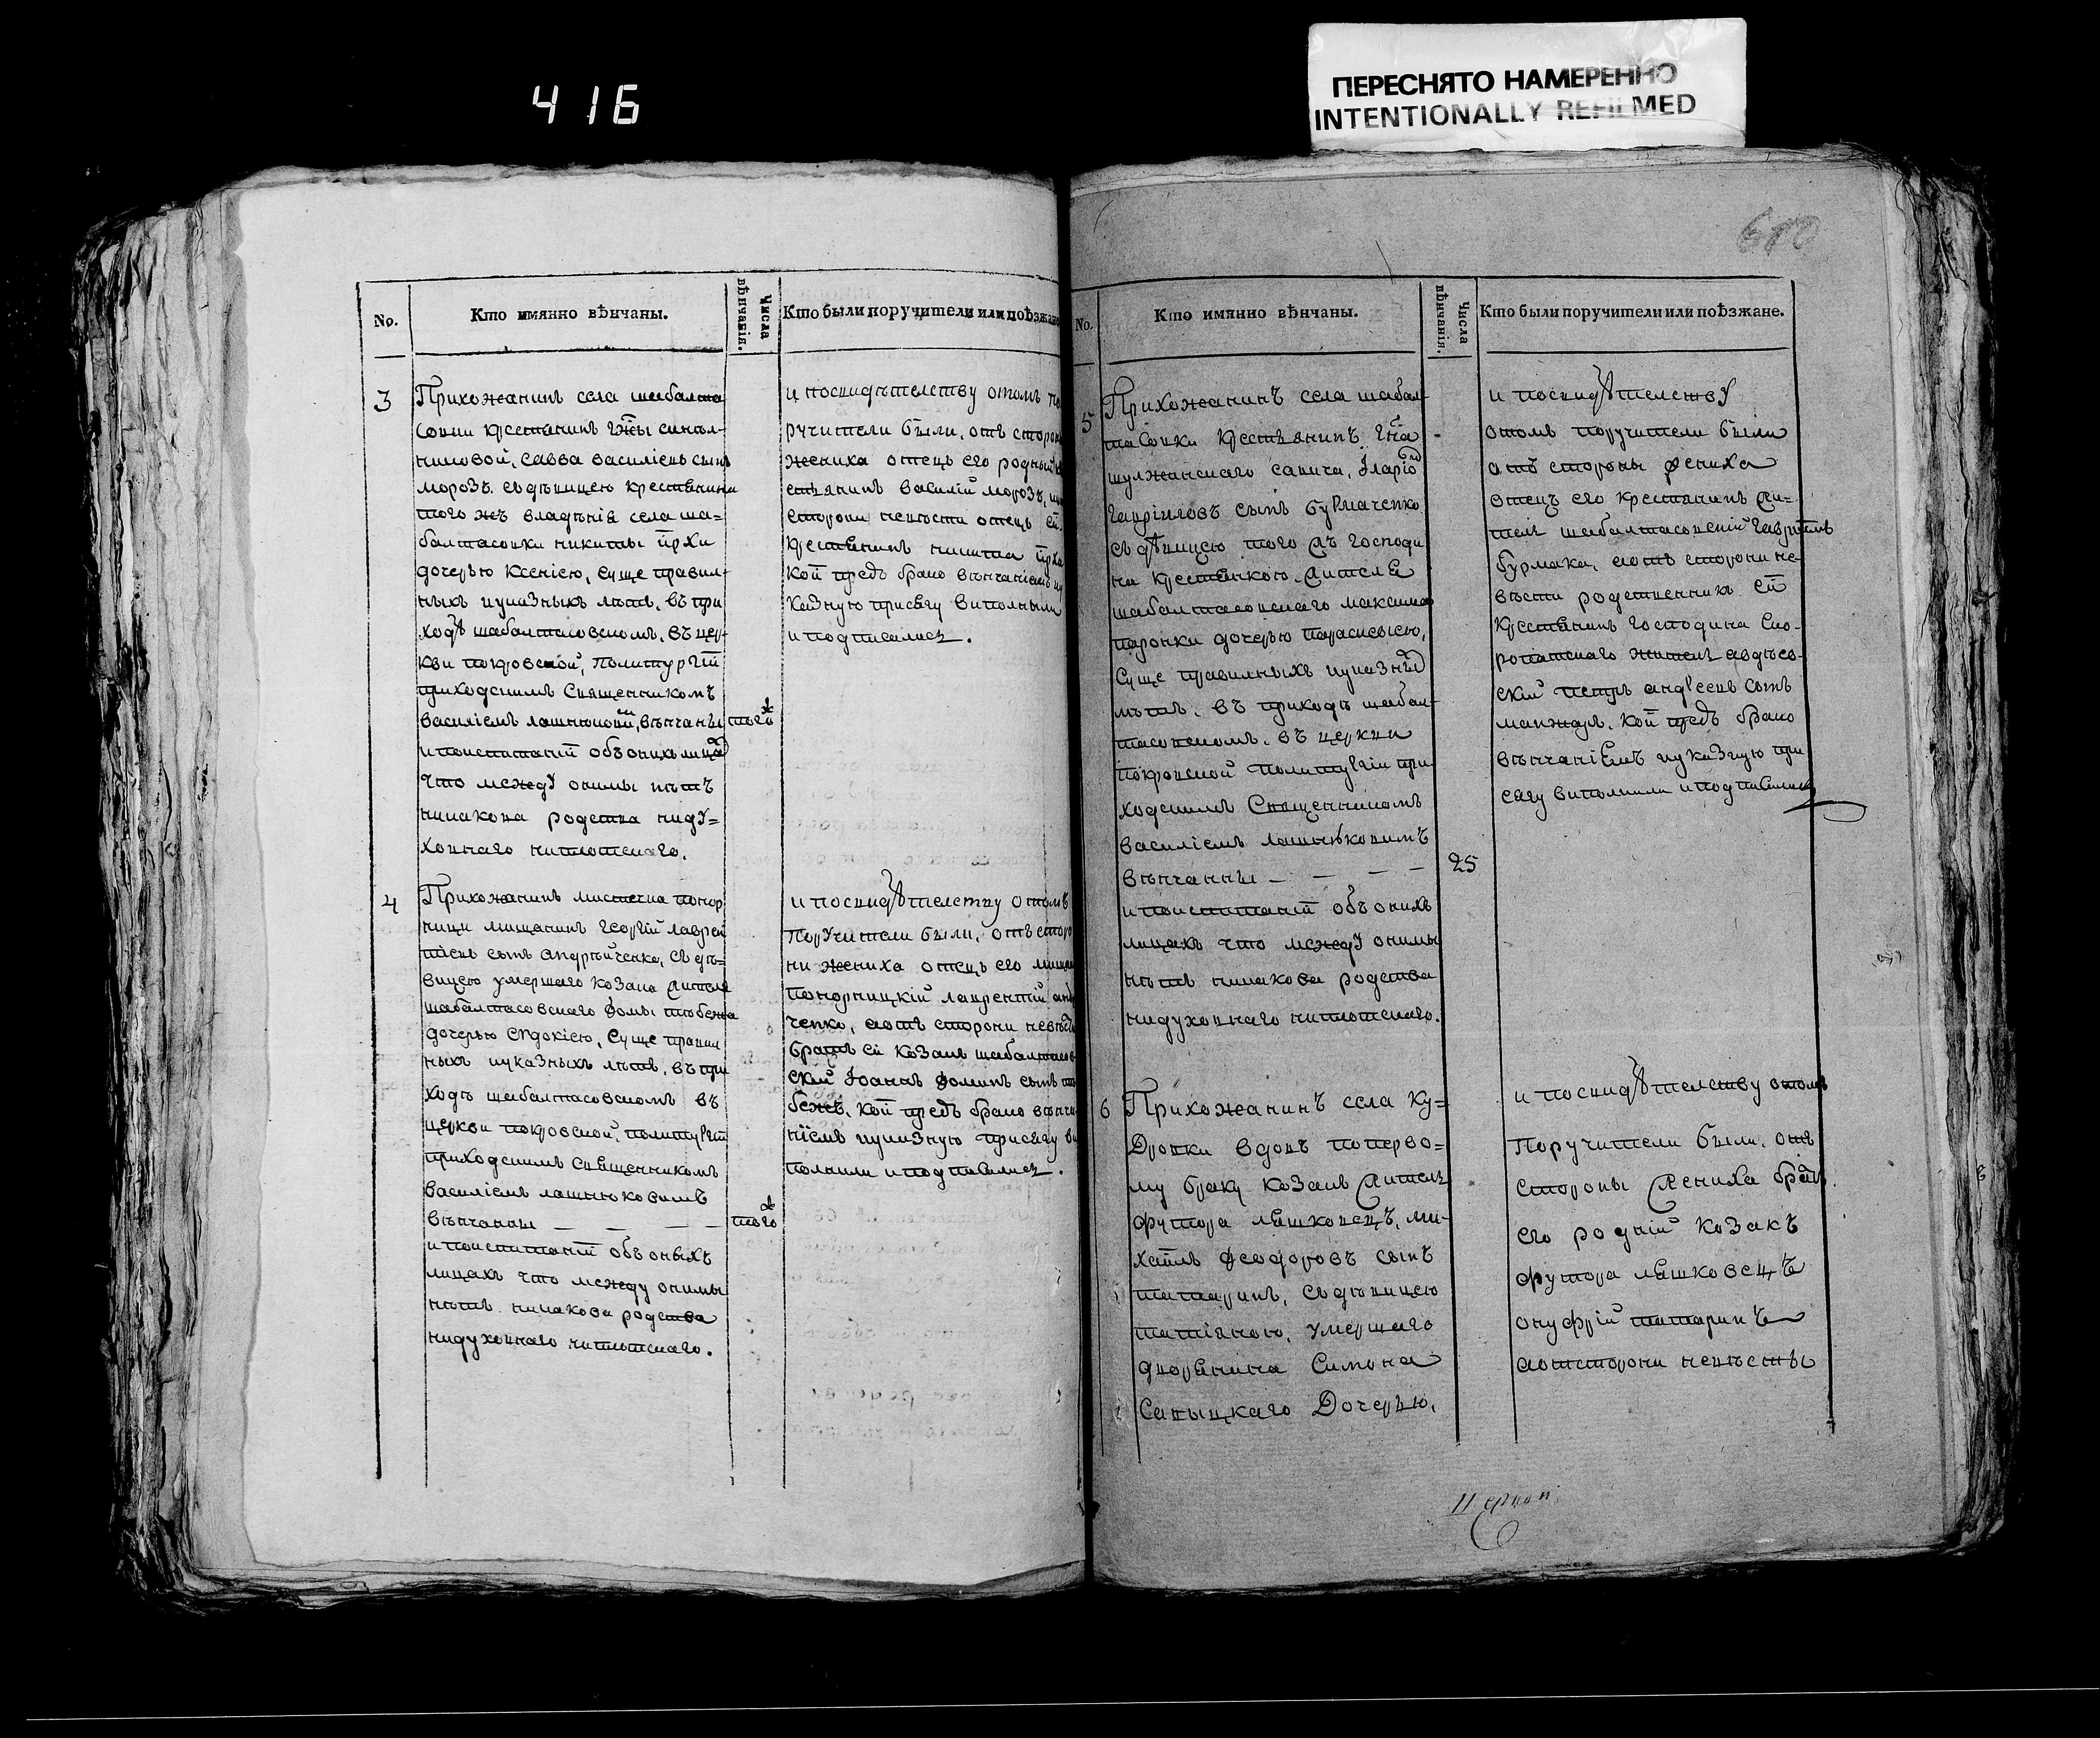 416
ПЕРЕСНЯТО НАМЕРЕННО
INTENTIONALLY REFILMED
680
No.
Кто имянно вѣнчаны.
Числа вѣнчанія.
Кто были поручители или поѣзжане
3
Прихожанинъ села шабалта
совки крестянинъ
новой, савва василіевъ сынъ
морозъ. съ дѣвицею крестянина
того жъ владѣнія села ша=
балтасовки никиты
дочерью ксеніею, суще правил
ныхъ иуказныхъ лѣтъ, въ при
ходѣ шабалтасовскомъ, въ цер
кви покровской, политургіи
приходскимъ священникомъ
василіемъ вѣнчаны
того ж
ипоиспитаніи обонихъ лицах
что между онимы нѣтъ
никакова родства ниду=
ховнаго ниплотскаго.
и посвидѣтелству отомъ по
ручители были, отъ сторон
жениха отецъ его родный
естянинъ василій морозъ,
сторони невѣсти отецъ ей
крестянинъ никита
кой предъ брако вѣнчаніемъ иу
казную присягу виполныли
иподписались.
4
Прихожанинъ мистечка понор
ници мищанинъ георгій лаврен
тіевъ сынъ андрѣйченко, съ дѣ=
вицею умершаго козака жителя
шабалтасовскаго фомы
дочерью евдокіею, суще правил
ныхъ иуказныхъ лѣтъ, въ при
ходѣ шабалтасовскомъ въ
церкви покровской, политургіи
приходскимъ священникомъ
василіемъ
вѣнчаны — — — —
того ж
ипоиспитаніи объ оныхъ
лицахъ что между онимы
нѣтъ никакова родства
нидуховнаго ниплотскаго.
и посвидѣтелству отомъ
поручители были, отъ сторо
ни жениха отецъ его мищан
понорницкій лаврентій анд
ченко, аотъ сторони невѣсти
братъ ей козакъ шабалтасов
скій Іоаннъ фоминъ сынъ
кой предъ брако вѣнча
ніемъ иуказную присягу ви
полнили иподписались.
No.
Кто имянно вѣнчаны.
Числа вѣнчанія.
Кто были поручители или поѣзжане.
5
Прихожанинъ села шабал
тасовки крестянинъ гна
савича, Іларіо
гавріиловъ сынъ бурмаченко
съ дѣвицею того жъ господи
на крестянкою жителя
шабалтасовскаго максима
дочерью параскевіею,
суще правилныхъ иуказных
лѣтъ, въ приходѣ шабал
тасовскомъ, въ церкви
покровской политургіи при
ходскимъ священникомъ
василіемъ
вѣнчанны — — — —
25
ипоиспитаніи объ онихъ
лицахъ что между онимы
нѣтъ никакова родства
нидуховнаго ниплотскаго.
и посвидѣтелству
отомъ поручители были
отъ стороны жениха
отецъ его крестянинъ жи=
тель шабалтасовскій гавріилъ
бурмака, аотъ сторони не
вѣсти родственникъ ей
крестянинъ господина ско
ропатскаго житель авдѣев
скій петръ андреевъ сынъ
манжара, кой предъ брако
вѣнчаніемъ иуказную при
сягу виполнили иподписались
6
Прихожанинъ села Ку=
дровки вдовъ поперво=
му браку козакъ житель
футора ляшковецъ, ми
хаилъ феодоровъ сынъ
татаринъ, съ дѣвицею
татіяною, умершаго
дворянина Симона
Савыцкаго Дочерью,
и посвидѣтелству отомъ
поручители были, отъ
стороны жениха братъ
его родній козакъ
футора ляшковецъ
онуфрій татаринъ
аотсторони невѣсты